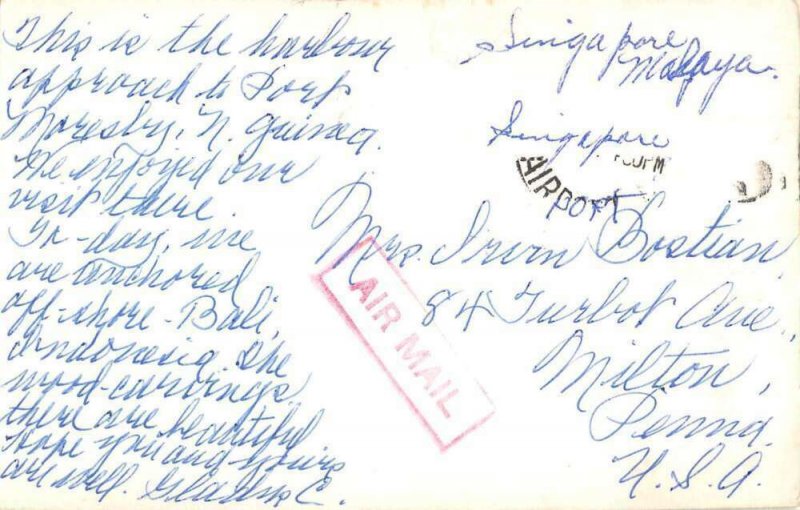 This is the harbour
approach to Port
Moresby, N. Guinea.
We enjoyed our
visit there.
To-day, we
are anchored
off-shore - Bali,
Indonesia. The
wood-carvings
there are beautiful
Hope you and yours
are well. Gladys C.
Singapore,
Malaya.
Singapore
PM
AIRPORT
Mrs. Irvin Bostian,
84 Turbot Ave.,
Milton,
Penna.
U.S.A.
AIR MAIL